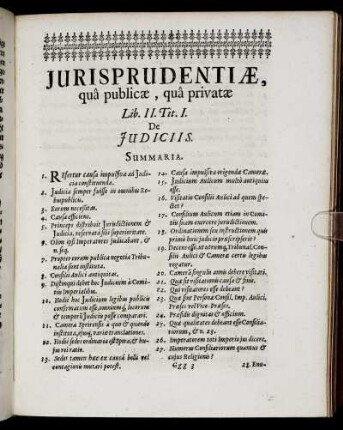 JURISPRUDENTIÆ,
quâ publicæ, quâ privatæ
Lib. II. Tit. I.
De
JUDICIIS.
SUMMARIA.
1. REfertur causa impulsiva ad Judicia
constituenda.
2. Judicia semper fuisse in omnibus Re-
buspublicis.
3. Eorum necessitas.
4. Causa efficiens.
5. Princeps distribuit Jurisdictionem &
Judicia, reservatâ sibi superioritate.
6. Olim ipsi Imperatores judicabant, &
n. seq.
7. Propter eorum publica negotia Tribu-
nalia sunt instituta.
8. Consilii Aulici antiquitas.
9. Distingui debet hoc Judicium à Comi-
tiis Imperialibus.
10. Hodie hoc Judicium legibus publicis
confirmatum esse, omniumq; locorum
& temporum Judiciis posse comparari.
11. Camera Spirensis à quo & quando
instituta, ejusq; variæ translationes.
12. Hodie sedes ordinaria est Spira, & hu-
jus rei ratio.
13. Sedes tamen hæc ex causâ belli vel
contagionis mutari potest.
14. Causa impulsiva erigenda Cameræ.
15. Judicium Aulicum multò antiquius
esse.
16. Visitatio Consilii Aulici ad quem spe-
ctet?
17. Consilium Aulicum etiam in Comi-
tiis suam exercere jurisdictionem.
18. Ordinationem seu instructionem quis
primò huic judicio præscripserit?
19. Decoro esse, ut utrumq; Tribunal Con-
silii Aulici & Camera certo legibus
regatur.
20. Camera singulis annis debere visitari.
21. Quæ sit visitationis causa & finis.
22. Qui visitatores esse debeant?
23. Quæ sint Personæ Consil. Imp. Aulici,
Præses vel Vice-Præses.
24. Præsidis dignitas & officium.
25. Qua qualitates debeant esse Consilia-
riorum, & n. 28.
26. Imperatorem toti Imperio jus dicere.
27. Numerus Consiliariorum quantus &
cujus Religionis?
Gzz 3
28. Eun-